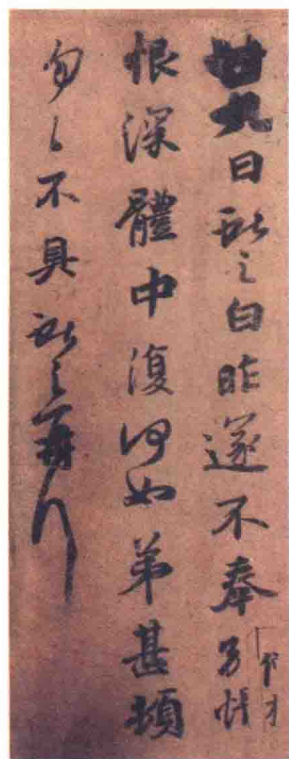 廿九日獻之白昨遂不奉別悵
恨深體中復何如弟甚頓
勿〻不具獻之再拜